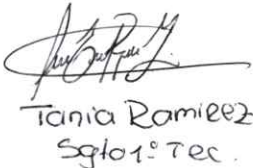 Tania Ramirez
Sgto1º Tec.